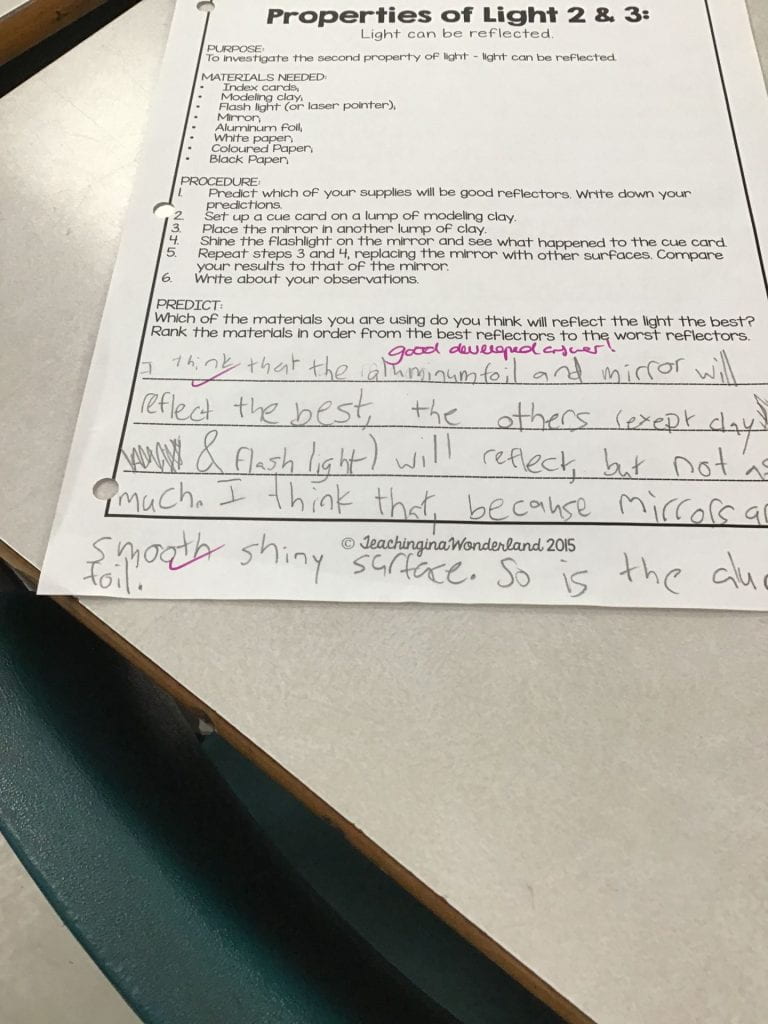 Properties of Light 2 & 3:
Light can be reflected.
PURPOSE:
To investigate the second property of light - light can be reflected.
MATERIALS NEEDED:
• Index cards,
• Modeling clay,
• Flash light (or laser pointer),
• Mirror,
• Aluminum foil,
• White paper,
• Coloured Paper,
• Black Paper,
PROCEDURE:
1. Predict which of your supplies will be good reflectors. Write down your
predictions.
2. Set up a cue card on a lump of modeling clay.
3. Place the mirror in another lump of clay.
4. Shine the flashlight on the mirror and see what happened to the cue card.
5. Repeat steps 3 and 4, replacing the mirror with other surfaces. Compare
your results to that of the mirror.
6. Write about your observations.
PREDICT:
Which of the materials you are using do you think will reflect the light the best?
Rank the materials in order from the best reflectors to the worst reflectors.
good developed answer!
I think that the aluminum foil and mirror will
reflect the best, the others (exept clay
& flash light) will reflect, but not as
much. I think that, because mirrors
© TeachinginaWonderland 2015
smooth shiny surface. So is the
foil.